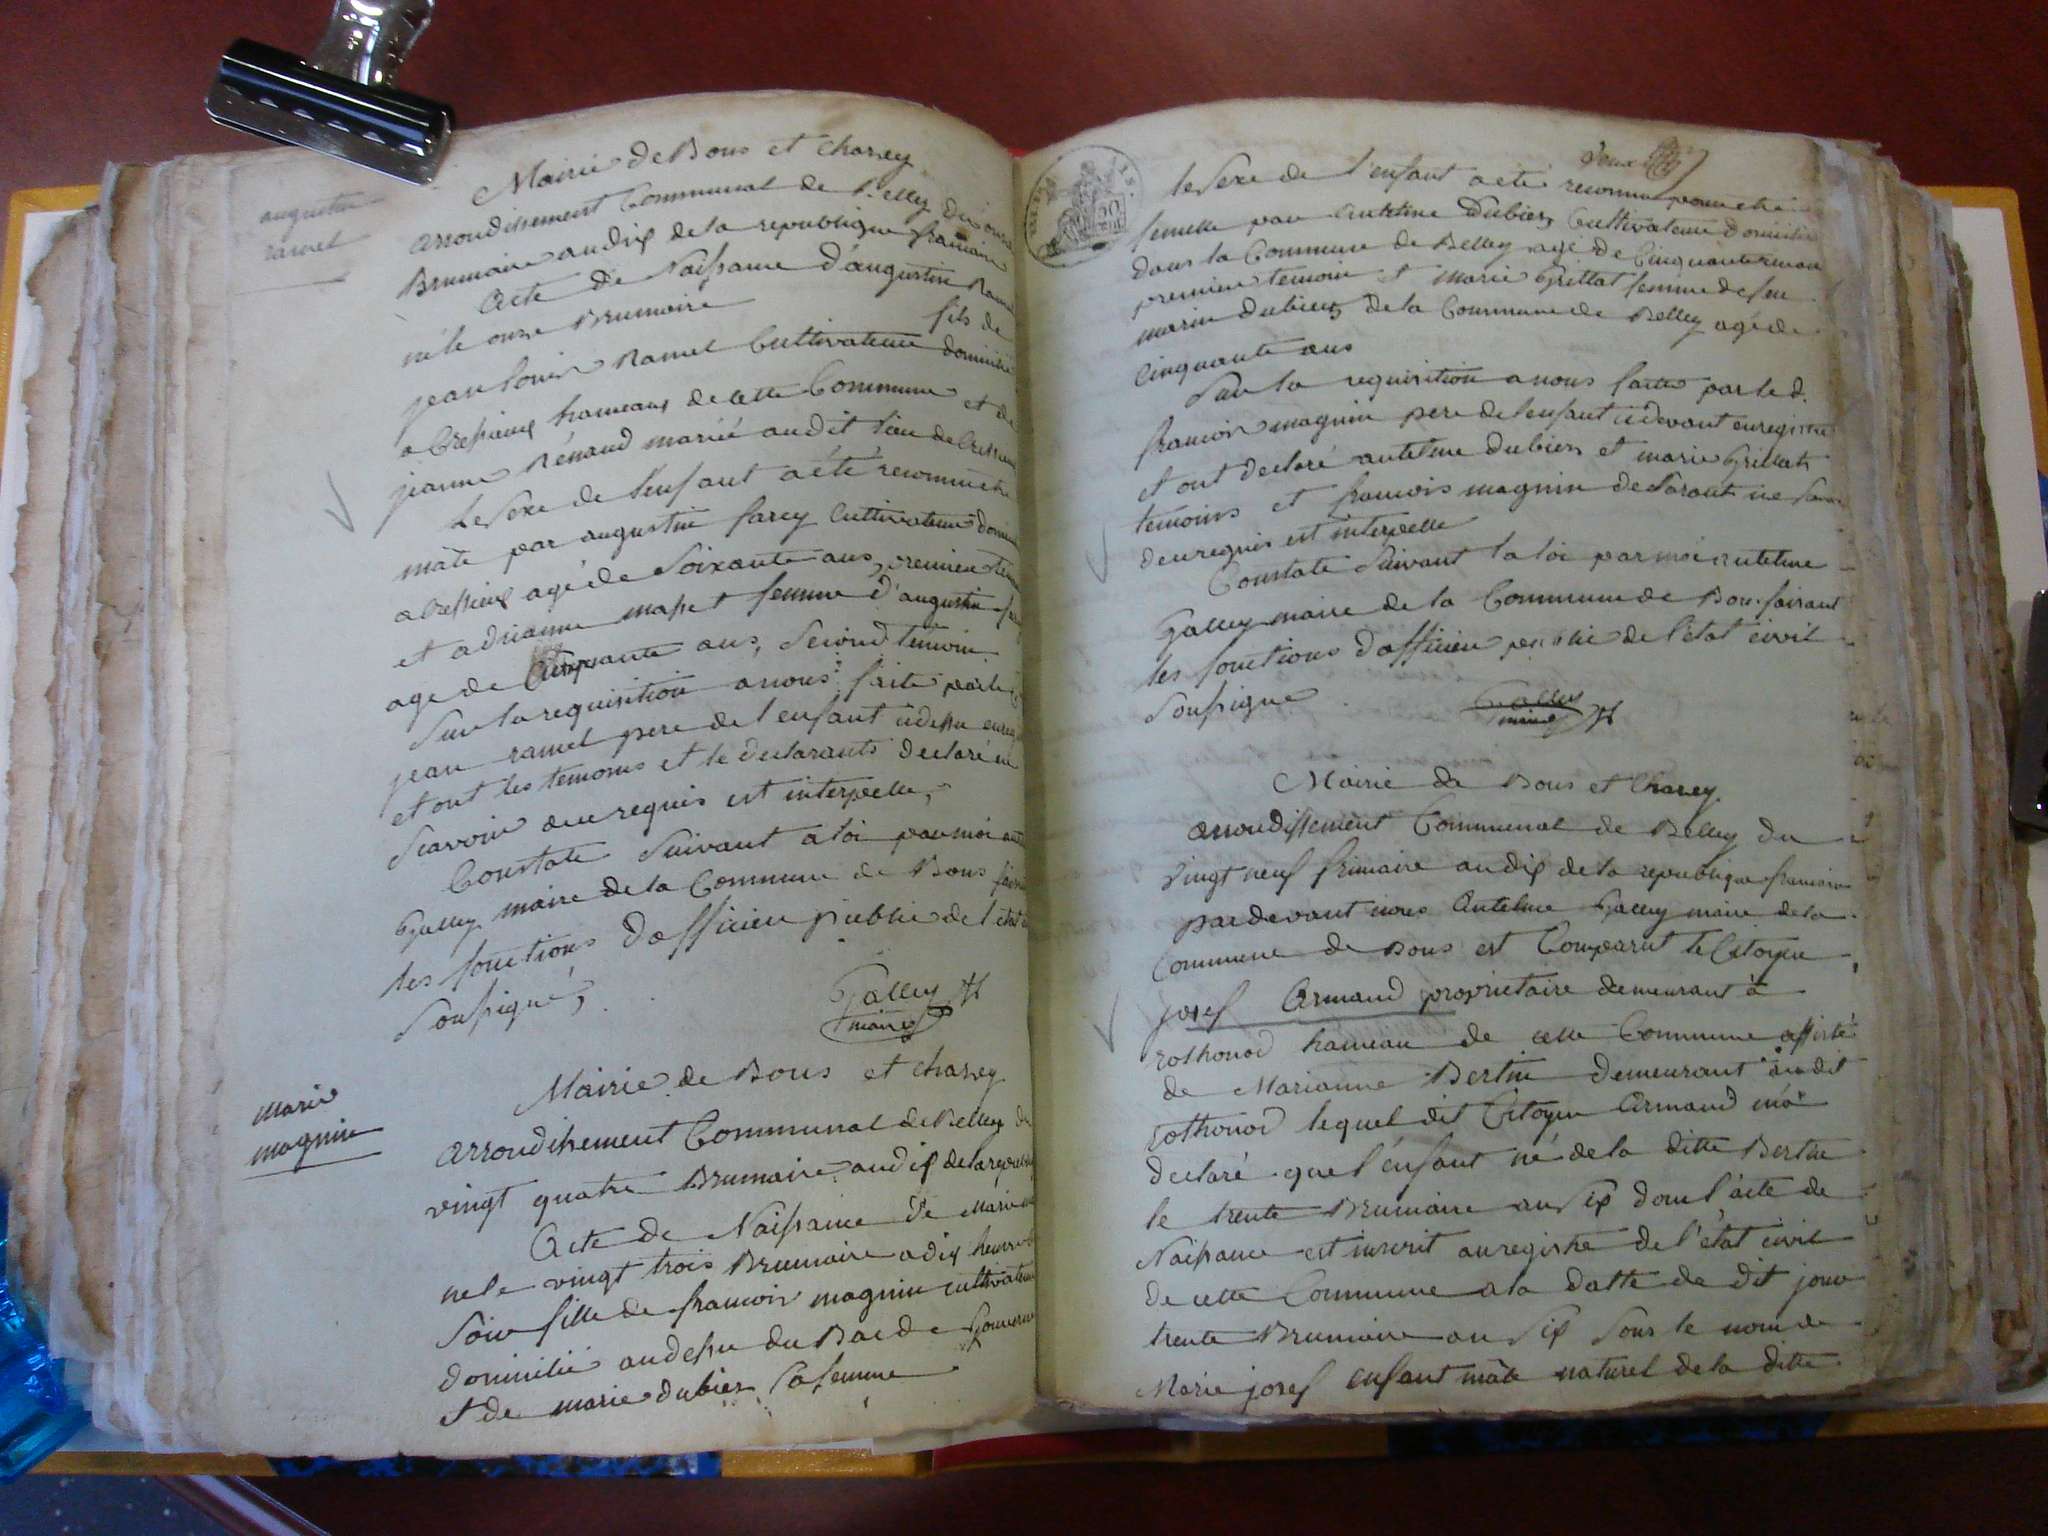 augustin
ramel
Mairie de Bons et Chazey
arrondissement Communal de Belley du onze
Brumaire an dix de la republique francaise
Acte de Naissance d'augustin Ramel
né le onze Brumaire fils de
jean louis Ramel Cultivateur domicilié
a Cressieux hameaux de cette Commune et de
jeanne Rénaud mariée audit lieu de Cressieux
Le Sexe de l'enfant a été reconnu etre
mâle par augustin farcy Cultivateur
a Cressieux agé de Soixante ans, premier temoin
et adrianne masset femme d'augustin
age de Cinquante ans, Second temoin
Sur la requisition a nous faite par le
jean ramel pere de l'enfant
et ont les temoins et le declarants declaré ne
Scavoir de ce requis est interpelle,
Constate Suivant a loi par moi
Galley maire de la Commune de Bons
les fonctions d officier public de l'etat
Soussigné,
Galley
maire
marie
magnin
Mairie de Bons et Chazey
arrondissement Communal de Belley du
vingt quatre Brumaire an dix de la
Acte de Naissance de Marie
ne le vingt trois Brumaire a dix heures
Soir fille de francois magnin cultivateur
domicilié au dessu du Bac de
et de marie dubiez Sa femme
deux
le Sexe de l'enfant a été reconnu pour etre
femelle par Antelme Dubiez Cultivateur domicilié
dans la Commune de Belley agé de Cinquante
premier temoin et marie Grillat femme de feu
marin dubiez de la Commune de Belley agé de
Cinquante ans
Sur la requisition a nous faitte par le d.
francois magnin pere de l'enfant cidevant enregistre
et ont declaré antelme dubiez et marie Grillat
temoins et francois magnin declarant ne
de ce requis est interpelle
Constaté Suivant la loi par moi antelme
Galley maire de la Commune de Bons faisant
les fonctions d officier public de l'etat civil
Soussigne
Galley
maire
Mairie de Bons et Chazey
arrondissement Communal de Belley du
vingt neuf frimaire an dix de la republique francaise
pardevant nous Antelme Galley maire de la
Commune de Bons est Comparut le Citoyen
josef Armand proprietaire demeurant à
rothonod hameau de cette Commune assisté
de Marianne Bertin demeurant audit
rothonod lequel dit Citoyen Armand m'a
declaré que l'enfant né de la ditte Bertin
le trente Brumaire an Six dont l'acte de
Naissance est inscrit au registre de l'état civil
de cette Commune a la datte de dit jour
trente Brumaire an Six Sous le nom de
Marie josef enfant mâle naturel de la ditte